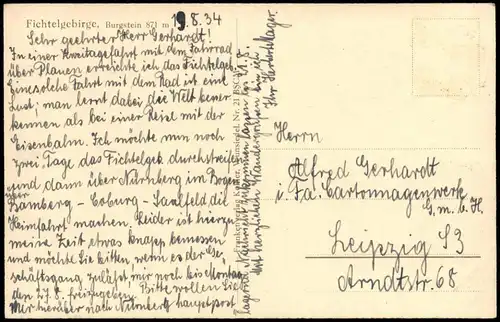 Fichtelgebirge, Burgstein 871 m
19.8.34
Sehr geehrter Herr Gerhardt!
In einer Zweitagefahrt mit dem Fahrrad
über Plauen erreichte ich das Fichtelgeb.
Eine solche Fahrt mit dem Rad ist eine
Lust; man lernt dabei die Welt besser
kennen als bei einer Reise mit der
Eisenbahn. Ich möchte nun noch
zwei Tage das Fichtelgeb. durchstreifen
und dann über Nürnberg im Bogen
über Bamberg - Coburg - Saalfeld die
Heimfahrt machen. Leider ist hierzu
meine Zeit etwas knapp bemessen
und möchte Sie bitten, wenn es der Ge-
schäftsgang zuläßt, mir noch bis Montag
den 27.8. freizugeben. Bitte wollen Sie
mir hierüber nach Nürnberg hauptpost
lagernd Nachricht zukommen lassen
Mit herzlichen Wandergrüßen bin ich
Ihr Herbert
Herrn
Alfred Gerhardt
i. Fa. Cartonnagenwerk
G.m.b.H.
Leipzig S3
Arndtstr. 68